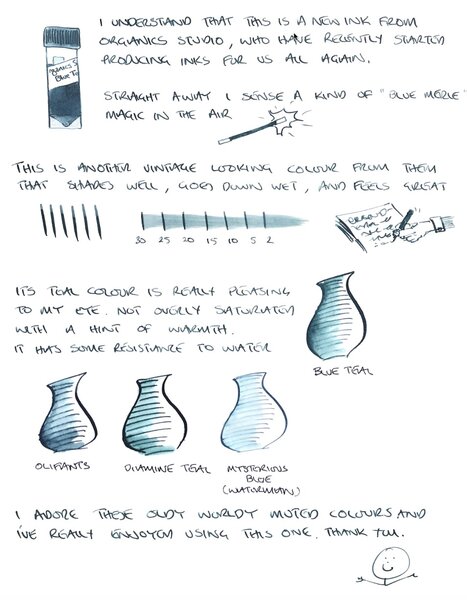 I UNDERSTAND THAT THIS IS A NEW INK FROM
ORGANICS STUDIO, WHO HAVE RECENTLY STARTED
PRODUCING INKS FOR US ALL AGAIN.
BLUE TE
STRAIGHT AWAY I SENSE A KIND OF "BLUE MERLE"
MAGIC IN THE AIR
THIS IS ANOTHER VINTAGE LOOKING COLOUR FROM THEM
THAT SHADES WELL, GOES DOWN WET, AND FEELS GREAT
30 25 20 15 10 5 2
ITS TEAL COLOUR IS REALLY PLEASING
TO MY EYE. NOT OVERLY SATURATED
WITH A HINT OF WARMTH.
IT HAS SOME RESISTANCE TO WATER
BLUE TEAL
OLIFANTS
DIAMINE TEAL
MYSTERIOUS
BLUE
(WATERMAN)
I ADORE THESE OLDY WORLDY MUTED COLOURS AND
I'VE REALLY ENJOYED USING THIS ONE. THANK YOU.